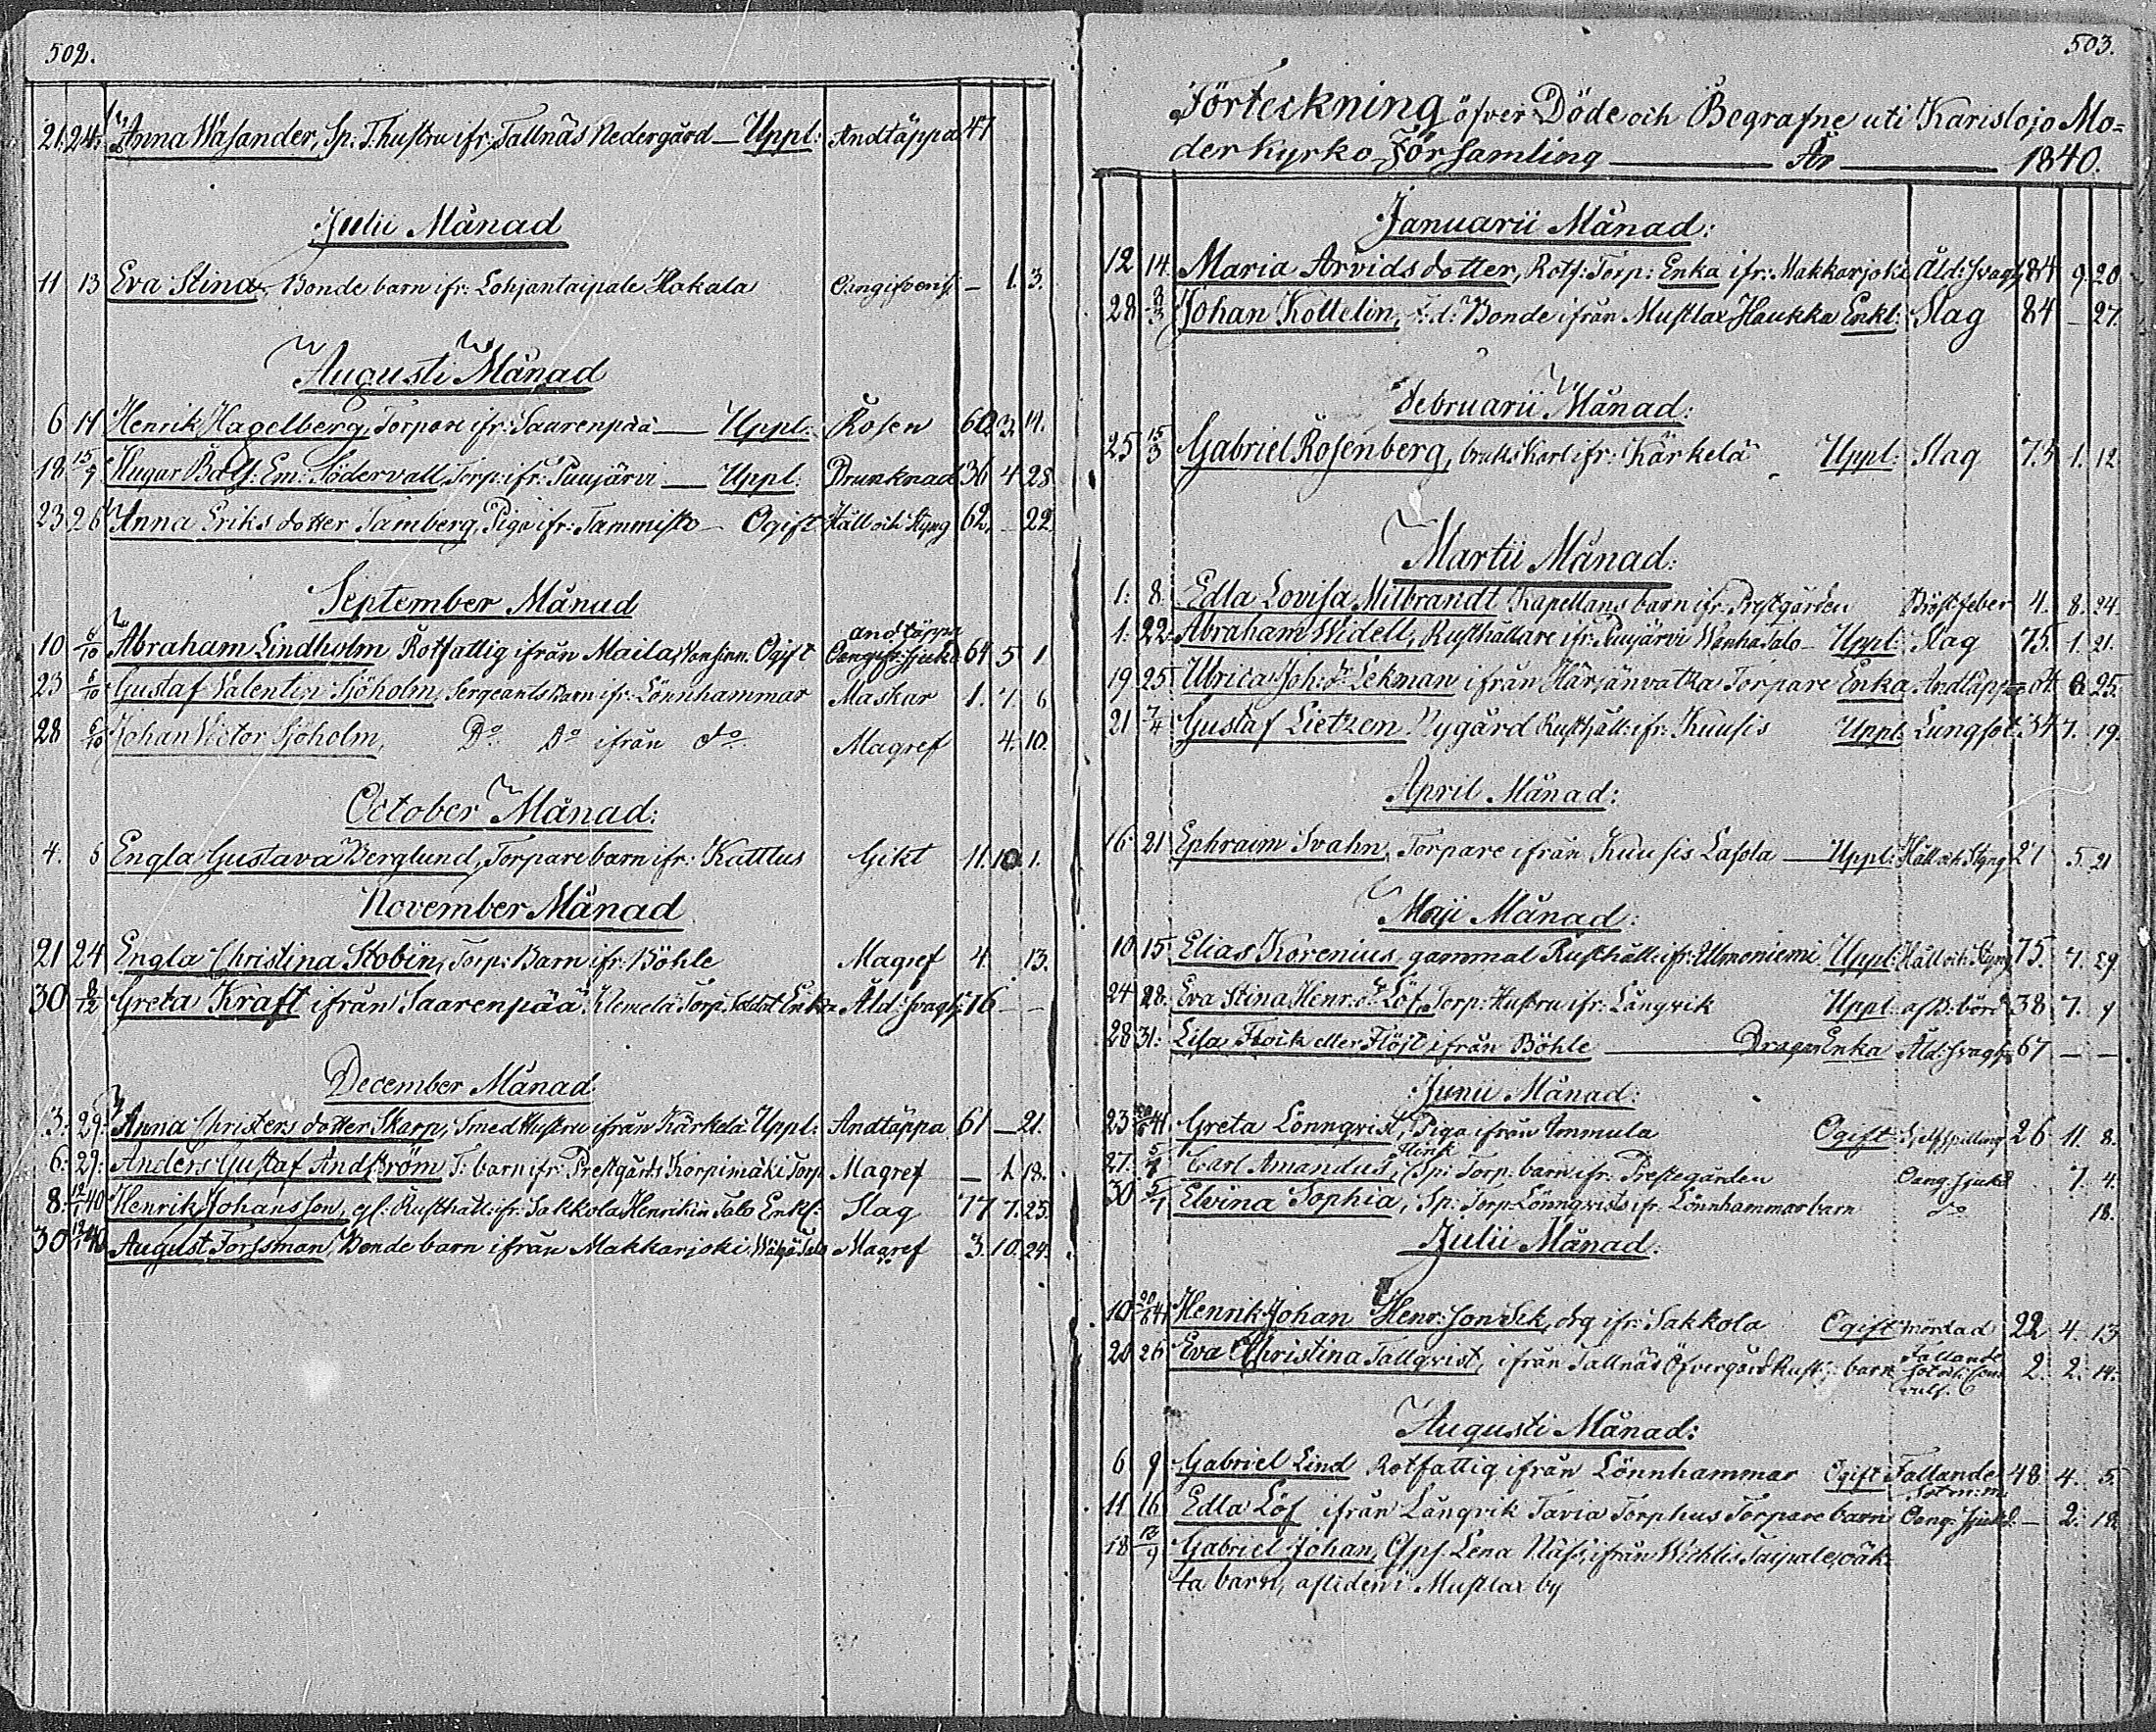 502.
21. 24. Anna Wasander, Sp: T. hustru ifr: Tallnäs Nedergård — Uppl: Andtäppa 47
Julii Månad
11 13 Eva Stina, Bonde barn ifr: Lohjantaipale Hakala — 1. 3.
Augusti Månad
6 14 Henrik Hagelberg, Torpare ifr: Saarenpää — Uppl: Rosen 60 3. 14.
18 15/9 Em: Södervall, Torp: ifr: Puujärvi — Uppl: Drunknad 36 4 28
23 26 Anna Eriksdotter Tamberg, Piga ifr: Tammisto — Ogift Håll och Styng 62. — 22
September Månad
andtäppa
10 6/10 Abraham Lindholm Rotfattig ifrån Maila, Vansinn. Ogift 64 5 1
23 6/10 Gustaf Valentin Sjöholm, Sergeants Barn ifr: Lönnhammar Maskar 1. 7. 6
28 6/10 Johan Victor Sjöholm, Do Do ifrån do Magref 4. 10.
October Månad:
4. 5 Engla Gustava Berglund, Torpare barn ifr: Kattlus Gikt 11. 10 1.
November Månad
21 24 Engla Christina Stobin, Torp: Barn ifr: Böhle Magref 4. 13.
30 8/12 Greta Kraft ifrån Saarenpää Klemelä Torp. Soldat Enka Åld: svagh: 76 — —
December Månad
3. 29. Anna Christersdotter Skarp, Smed Hustru ifrån Kärkelä Uppl: Andtäppa 61 — 21.
6. 29: Anders Gustaf Lindström T: barn ifr: Prestgårds Korpimäki Torp Magref — 1. 18.
8. 12/1 40 Henrik Johansson, Rusthåll: ifr: Sakkola Henrikin Talo Enkl: Slag 77 7. 25.
30 12/1 40 August Forssman, Bonde barn ifrån Makkarjoki Magref 3. 10. 24.
503.
Förteckning öfver Döde och Begrafne uti Karislojo Mo=
derkyrko Församling — År — 1840.
Januarii Månad:
12 14. Maria Arvidsdotter, Rotf: Torp: Enka ifr: Makkarjoki Åld: svagh: 84 9. 20
28 8/3 Johan Kottelin, F.d: Bonde ifrån Mustlax Haukka Enkl: Slag 84 — 27.
Februarii Månad:
25 15/3 Gabriel Rosenberg, brukskarl ifr: Kärkelä Uppl: Slag 73 1. 12
Martii Månad:
1: 8. Edla Lovisa Milbrandt Kapellans barn ifr: Prestgården Bröstfeber 4. 8. 24.
1: 22. Abraham Widell, Rusthållare ifr: Puujärvi Wanha Talo — Uppl: Slag 75. 1. 21.
19 25 Ulrica Joh: dr Ekman ifrån Härjänvatka Torpare Enka Andtäppa 6 25.
21 7/4 Gustaf Lietzen Nygård Rusthåll: ifr: Kuusis Uppl: Lungsot 34 7. 19.
April Månad:
16 21 Ephraim Svahn, Torpare ifrån Kuusis Lasola — Uppl: Håll och Styng 27 5. 21
Maji Månad:
10 15. Elias Korenius gammal Rusthåll: ifr: Ilmoniemi Uppl: Håll och Styng 75. 7. 29
24 28. Eva Stina Henr: dr Löf, Torp: Hustru ifr: Långvik Uppl: af B: börd 38 7. 9
28 31. Lisa Flöjt ifrån Böhle — Dragon Enka Åld: svagh: 67 — —
Junii Månad:
23 Greta Lönnqvist, Piga ifrån Immula Ogift Sjelfspilling 26 11. 8.
27. 5/7 Carl Amandus, Sp: Torp. barn ifr: Prestegården Oang. sjukd 7. 4.
30 5/7 Elvina Sophia, Sp: Torp: Lönnqvists ifr: Lönnhammar barn do 18.
Julii Månad:
10 Henrik Johan Henr: son Ek, drg ifr: Sakkola Ogift mördad 22 4. 13
20 26 Eva Christina Tallqvist, ifrån Tallnäs Öfvergård Rusth: barn Fallande
sot och Con
vuls. 2. 2. 14.
Augusti Månad:
6 9 Gabriel Lind Rotfattig ifrån Lönnhammar Ogift Fallande 48. 4. 5.
sot m: m:
11 16 Edla Löf ifrån Långvik Tavia Torphus Torpare barn Oang: sjukd: — 2. 18
18 13/9 Gabriel Johan, Lena Näfs, ifrån Wichtis Taipale, oäk=
ta barn, afliden i Mustlax by